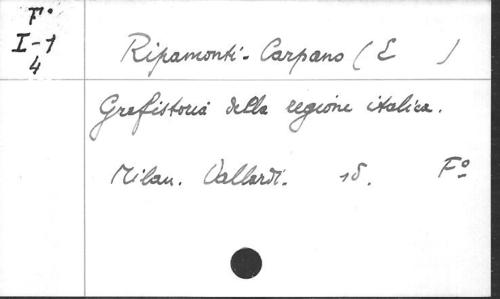 Fº
I-1
4
Ripamonti-Carpano (E )
Grafistoria della regione italica.
Milan. Vallardi. 18 . Fº